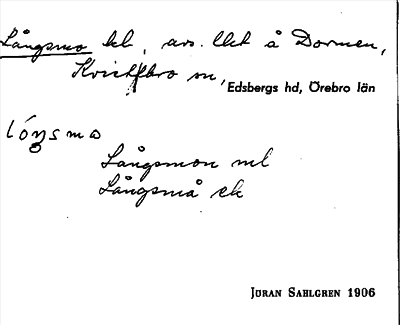 Långsmo hl, avs. Ekt å Dormen,
Kvistbro sn,
Edsbergs hd, Örebro län
lóŋsmo
Långsmon ml
Långsmå ek
JÖRAN SAHLGREN 1906